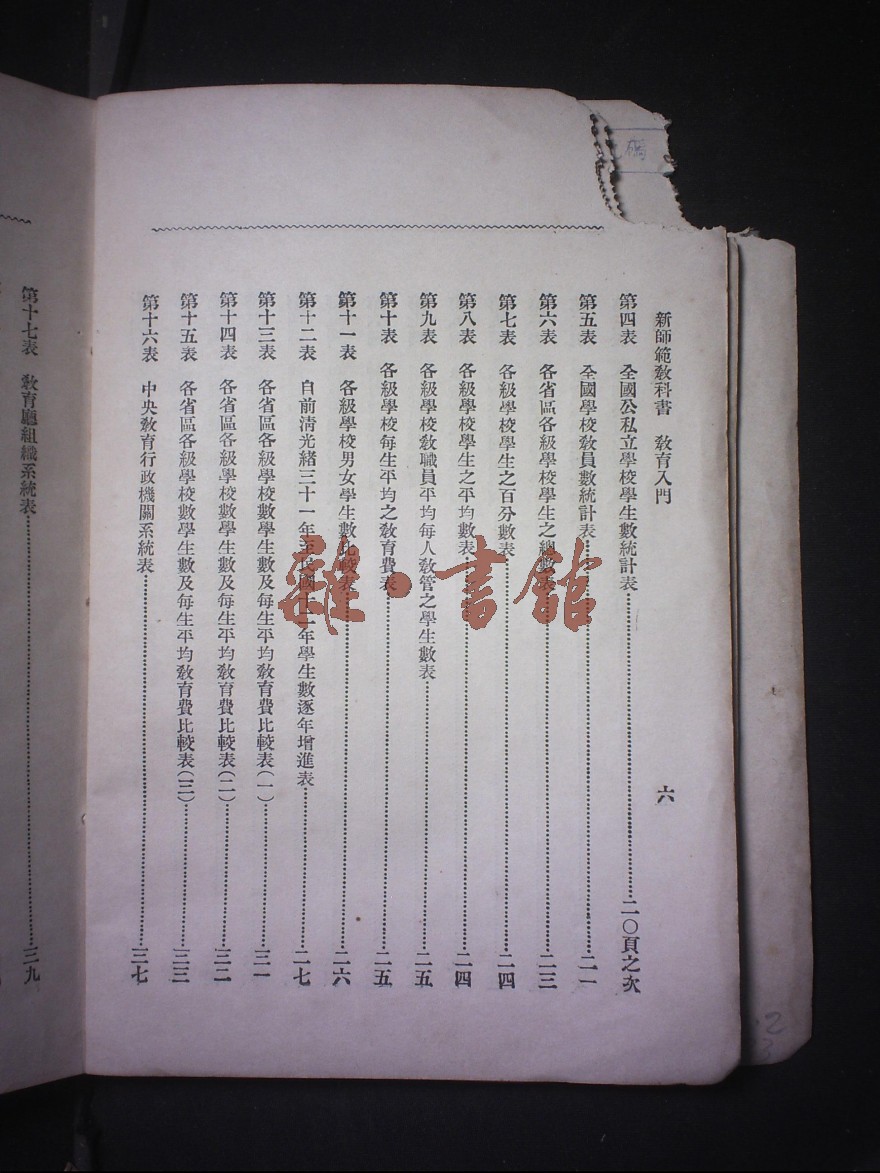 新師範敎科書　敎育入門　六
第四表　全國公私立學校學生數統計表……二〇頁之次
第五表　全國學校敎員數統計表……二一
第六表　各省區各級學校學生之總數表……二三
第七表　各級學校學生之百分數表……二四
第八表　各級學校學生之平均數表……二四
第九表　各級學校敎職員平均每人敎管之學生數表……二五
第十表　各級學校每生平均之敎育費表……二五
第十一表　各級學校男女學生數比較表……二六
第十二表　自前淸光緒三十一年至民國十二年學生數逐年增進表……二七
第十三表　各省區各級學校數學生數及每生平均敎育費比較表(一)……三一
第十四表　各省區各級學校數學生數及每生平均敎育費比較表(二)……三二
第十五表　各省區各級學校數學生數及每生平均敎育費比較表(三)……三三
第十六表　中央敎育行政機關系統表……三七
第十七表　敎育廳組織系統表……三九
雜·書館